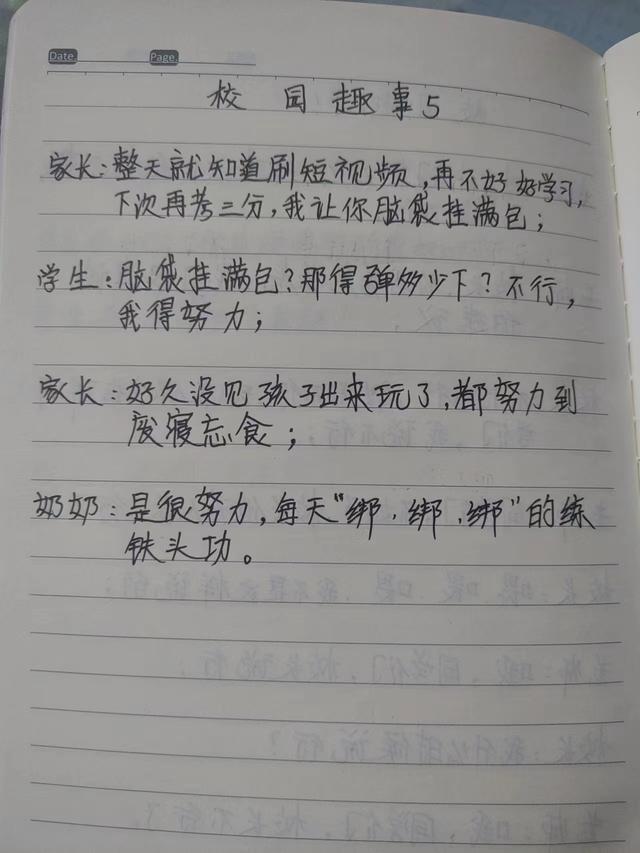 Date.
Page.
校园趣事5
家长:整天就知道刷短视频,再不好好学习,
下次再考三分,我让你脑袋挂满包;
学生:脑袋挂满包?那得弹多少下?不行,
我得努力;
家长:好久没见孩子出来玩了,都努力到
废寝忘食;
奶奶:是很努力,每天"绑、绑、绑"的练
铁头功。